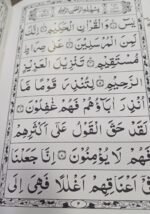 بِسْمِ اللهِ الرَّحْمٰنِ الرَّحِيْمِ
يٰسٓ ۚ وَالْقُرْاٰنِ الْحَكِيْمِ ۙ اِنَّكَ
لَمِنَ الْمُرْسَلِيْنَ ۙ عَلٰى صِرَاطٍ
مُّسْتَقِيْمٍ ؕ تَنْزِيْلَ الْعَزِيْزِ
الرَّحِيْمِ ۙ لِتُنْذِرَ قَوْمًا مَّاۤ
اُنْذِرَ اٰبَآؤُهُمْ فَهُمْ غٰفِلُوْنَ
لَقَدْ حَقَّ الْقَوْلُ عَلٰٓى اَكْثَرِهِمْ
فَهُمْ لَا يُؤْمِنُوْنَ اِنَّا جَعَلْنَا
فِيْٓ اَعْنَاقِهِمْ اَغْلٰلًا فَهِيَ اِلَى